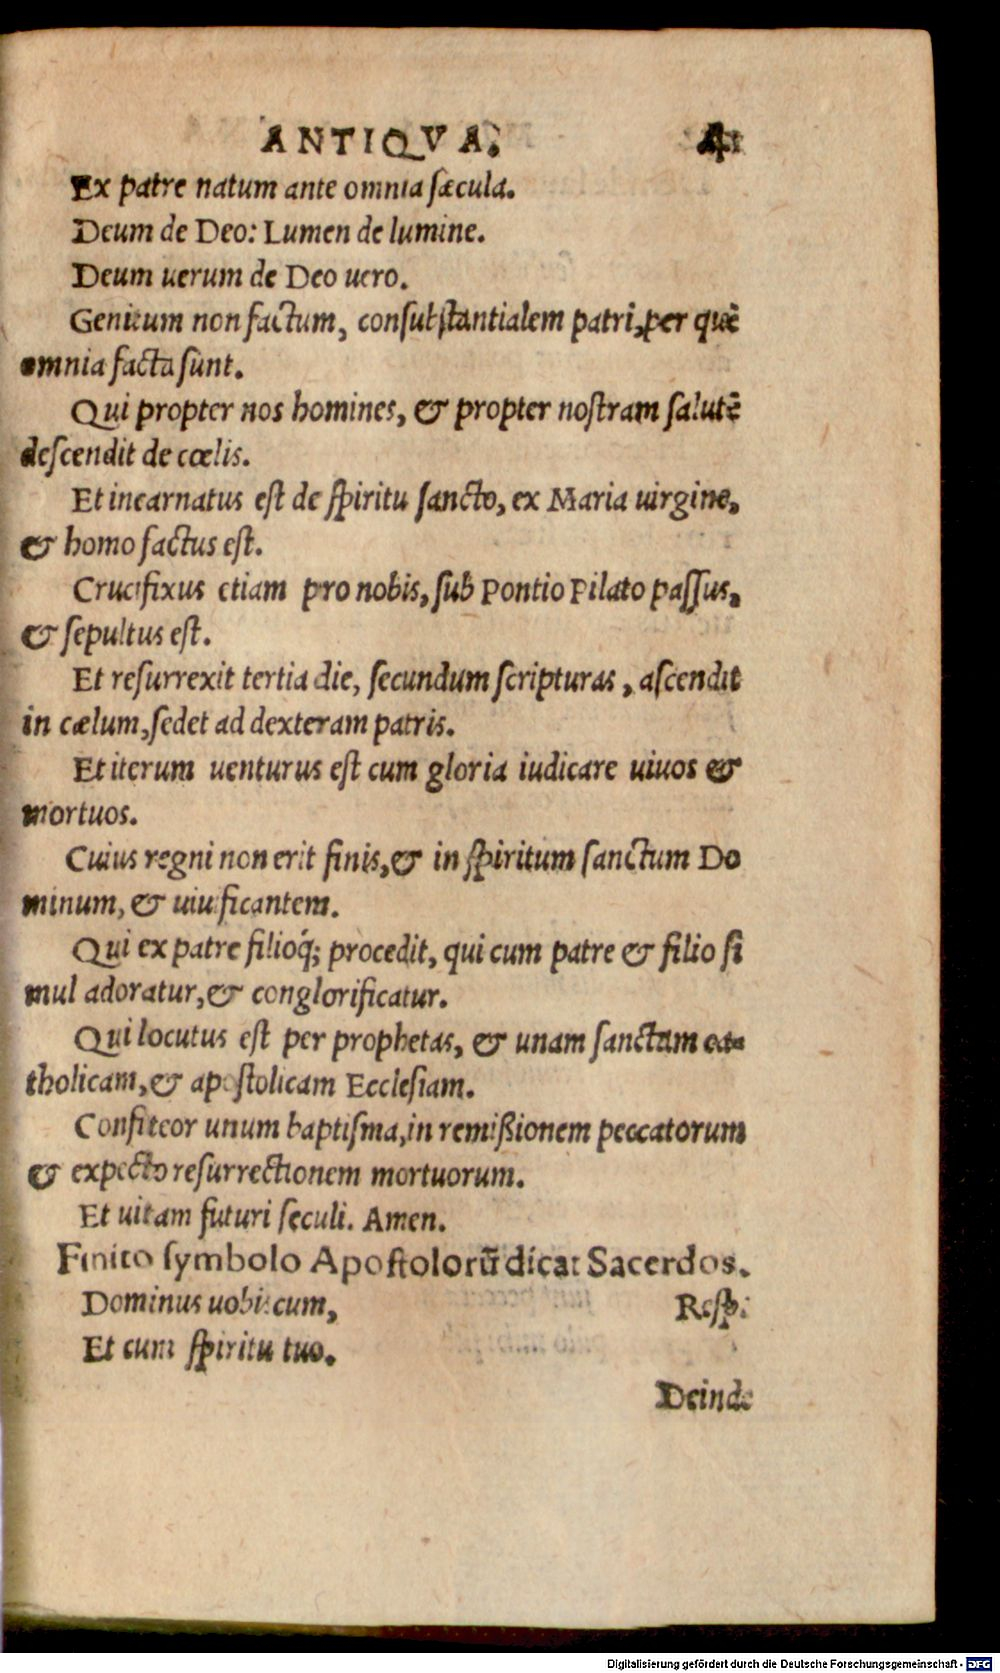 ANTIQVA. 41
Ex patre natum ante omnia sæcula.
Deum de Deo: Lumen de lumine.
Deum uerum de Deo uero.
Genitum non factum, consubstantialem patri, per quē
omnia facta sunt.
Qui propter nos homines, & propter nostram salutē
descendit de cœlis.
Et incarnatus est de spiritu sancto, ex Maria uirgine,
& homo factus est.
Crucifixus etiam pro nobis, sub Pontio Pilato passus,
& sepultus est.
Et resurrexit tertia die, secundum scripturas, ascendit
in cælum, sedet ad dexteram patris.
Et iterum uenturus est cum gloria iudicare uiuos &
mortuos.
Cuius regni non erit finis, & in spiritum sanctum Do
minum, & uiuificantem.
Qui ex patre filioq́; procedit, qui cum patre & filio si
mul adoratur, & conglorificatur.
Qui locutus est per prophetas, & unam sanctam ca-
tholicam, & apostolicam Ecclesiam.
Confiteor unum baptisma, in remißionem peccatorum
& expecto resurrectionem mortuorum.
Et uitam futuri seculi. Amen.
Finito symbolo Apostolorū dicat Sacerdos.
Dominus uobiscum, Resp:
Et cum spiritu tuo.
Deinde
Digitalisierung gefördert durch die Deutsche Forschungsgemeinschaft - DFG